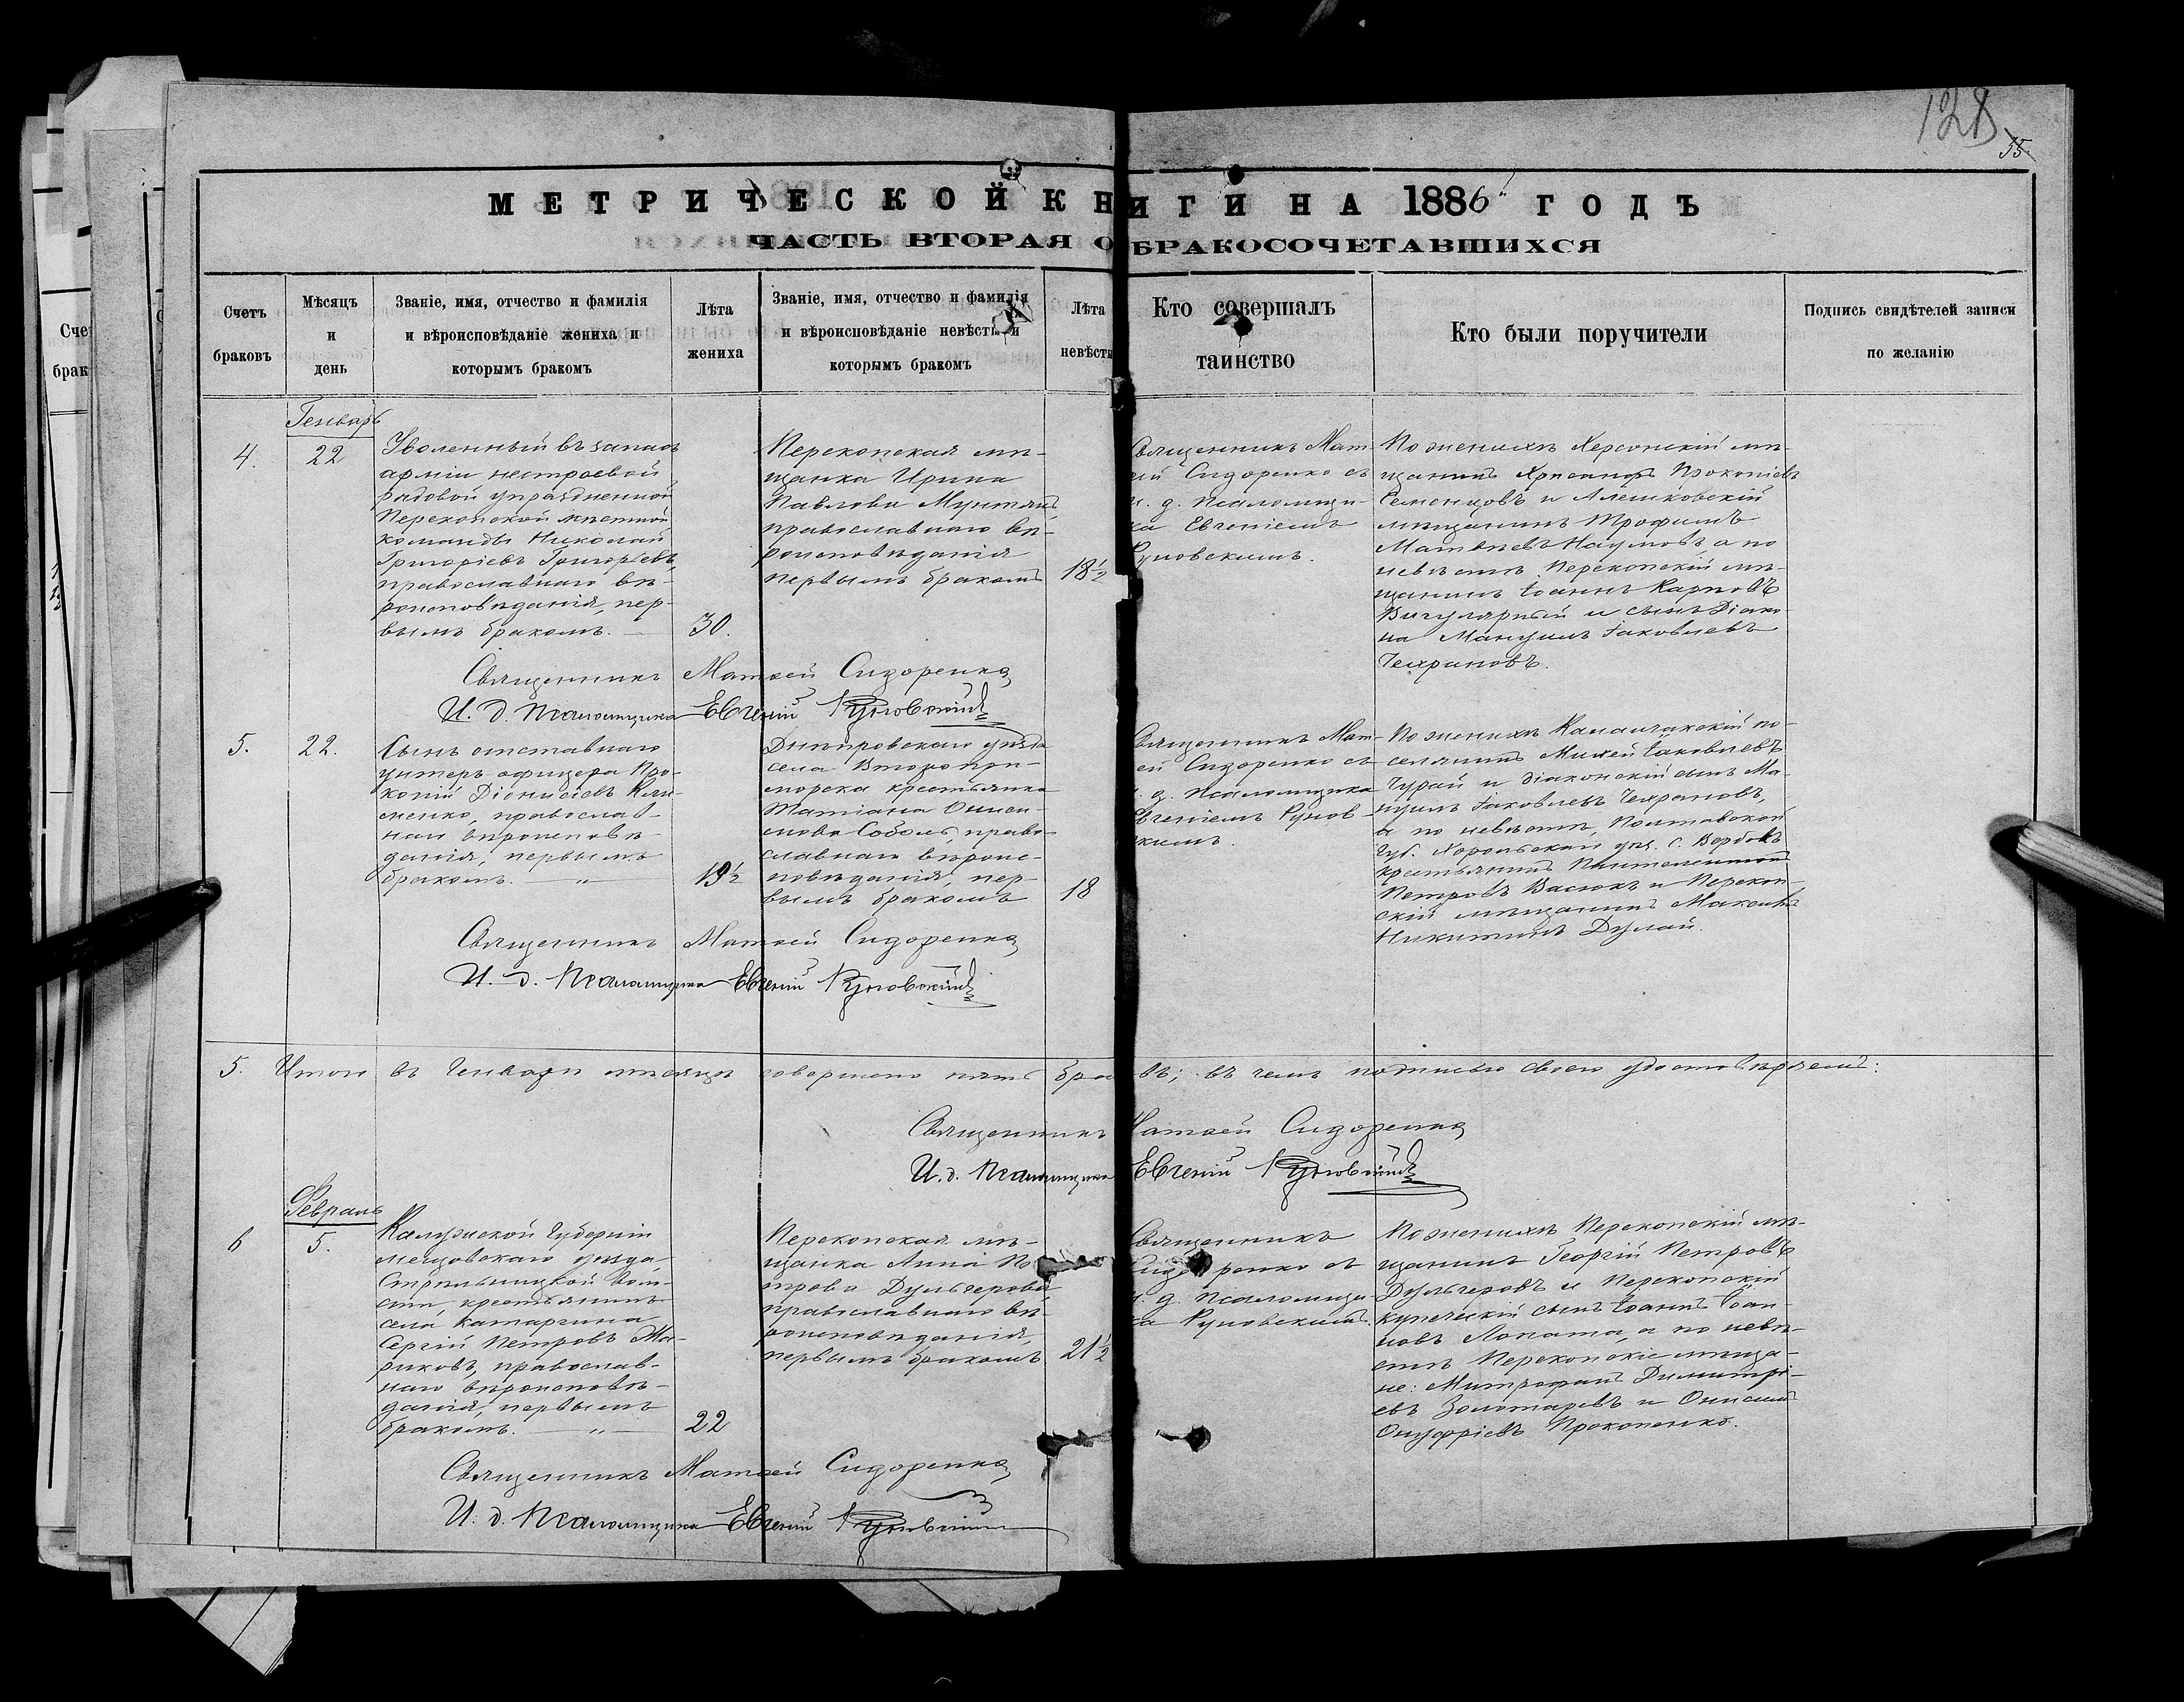 128
35.
МЕТРИЧЕСКОЙ КНИГИ НА 1886 ГОДЪ
ЧАСТЬ ВТОРАЯ О БРАКОСОЧЕТАВШИХСЯ
Счетъ
браковъ
Мѣсяцъ
и
день
Званіе, имя, отчество и фамилія
и вѣроисповѣданіе жениха и
которымъ бракомъ
Лѣта
жениха
Званіе, имя, отчество и фамилія
и вѣроисповѣданіе невѣсты и
которымъ бракомъ
Лѣта
невѣсты
Кто совершалъ
таинство
Кто были поручители
Подпись свидѣтелей записи
по желанію
Генварь
4.
22
Уволенный въ запасъ
арміи нестроевой
рядовой упраздненной
Перекопской мѣстной
команды Николай
Григоріевъ Григорьевъ,
православнаго вѣ-
роисповѣданія, пер-
вымъ бракомъ.
30.
Перекопская мѣ-
щанка Ирина
Павлова Мунтянъ,
православнаго вѣ-
роисповѣданія
первымъ бракомъ
18½
Священникъ Мат-
ѳій Сидоренко съ
и. д. псаломщи-
ка Евгеніемъ
Руновскимъ.
По женихѣ Херсонскій мѣ-
щанинъ Хрисанфъ Прокопіевъ
Семенцовъ и Алешковскій
мѣщанинъ Трофимъ
Матвѣевъ Наумовъ, а по
невѣстѣ Перекопскій мѣ-
щанинъ Іоаннъ Карповъ
Вигулярный и сынъ Діако-
на Мануилъ Іаковлевъ
Чехрановъ.
Священникъ Матѳей Сидоренко
И. д. псаломщика Евгеній Руновскій
5.
22.
Сынъ отставнаго
унтеръ-офицера Про-
копій Діонисіевъ Кли-
менко, православ-
наго вѣроисповѣ-
данія, первымъ
бракомъ. — " —
19½
Днѣпровскаго уѣзда
села Второпри-
морска крестьянка
Татіана Ониси-
мова Соболь, право-
славнаго вѣроис-
повѣданія, пер-
вымъ бракомъ
18
Священникъ Мат-
ѳей Сидоренко съ
и. д. псаломщика
Евгеніемъ Рунов-
скимъ.
По женихѣ Каланчакскій по-
селянинъ Михей Іаковлевъ
Чурай и діаконскій сынъ Ма-
нуилъ Іаковлевъ Чехрановъ,
а по невѣстѣ, Полтавской
губ. Хорольскаго уѣз. с. Вербовъ
крестьянинъ Пантелеимонъ
Петровъ Васюкъ и Перекоп-
скій мѣщанинъ Максимъ
Никитинъ Дулай.
Священникъ Матѳей Сидоренко
И. д. псаломщика Евгеній Руновскій
5. Итого въ Генварѣ мѣсяцѣ совершено пять браковъ; въ чемъ подписью своею удостовѣряемъ:
Священникъ Матѳей Сидоренко
И. д. псаломщика Евгеній Руновскій
Февраль
6
5.
Калужской Губерніи
мещовскаго уѣзда
Стрѣльницкой воло-
сти, крестьянинъ
села Катаргина
Сергій Петровъ Жа-
риковъ, православ-
наго вѣроисповѣ-
данія, первымъ
бракомъ. — " —
22
Перекопская мѣ-
щанка Анна Пе-
трова Дульгерова
православнаго вѣ-
роисповѣданія,
первымъ бракомъ
21½
Священникъ
Сидоренко съ
и. д. псаломщи-
ка Руновскимъ.
По женихѣ Перекопскій мѣ-
щанинъ Георгій Петровъ
Дульгеровъ и Перекопскій
купеческій сынъ Іоаннъ Іоан-
новъ Лопата, а по невѣ-
стѣ Перекопскіе мѣща-
не: Митрофанъ Димитрі-
евъ Золотаревъ и Онисимъ
Онуфріевъ Прокопенко.
Священникъ Матѳей Сидоренко
И. д. псаломщика Евгеній Руновскій